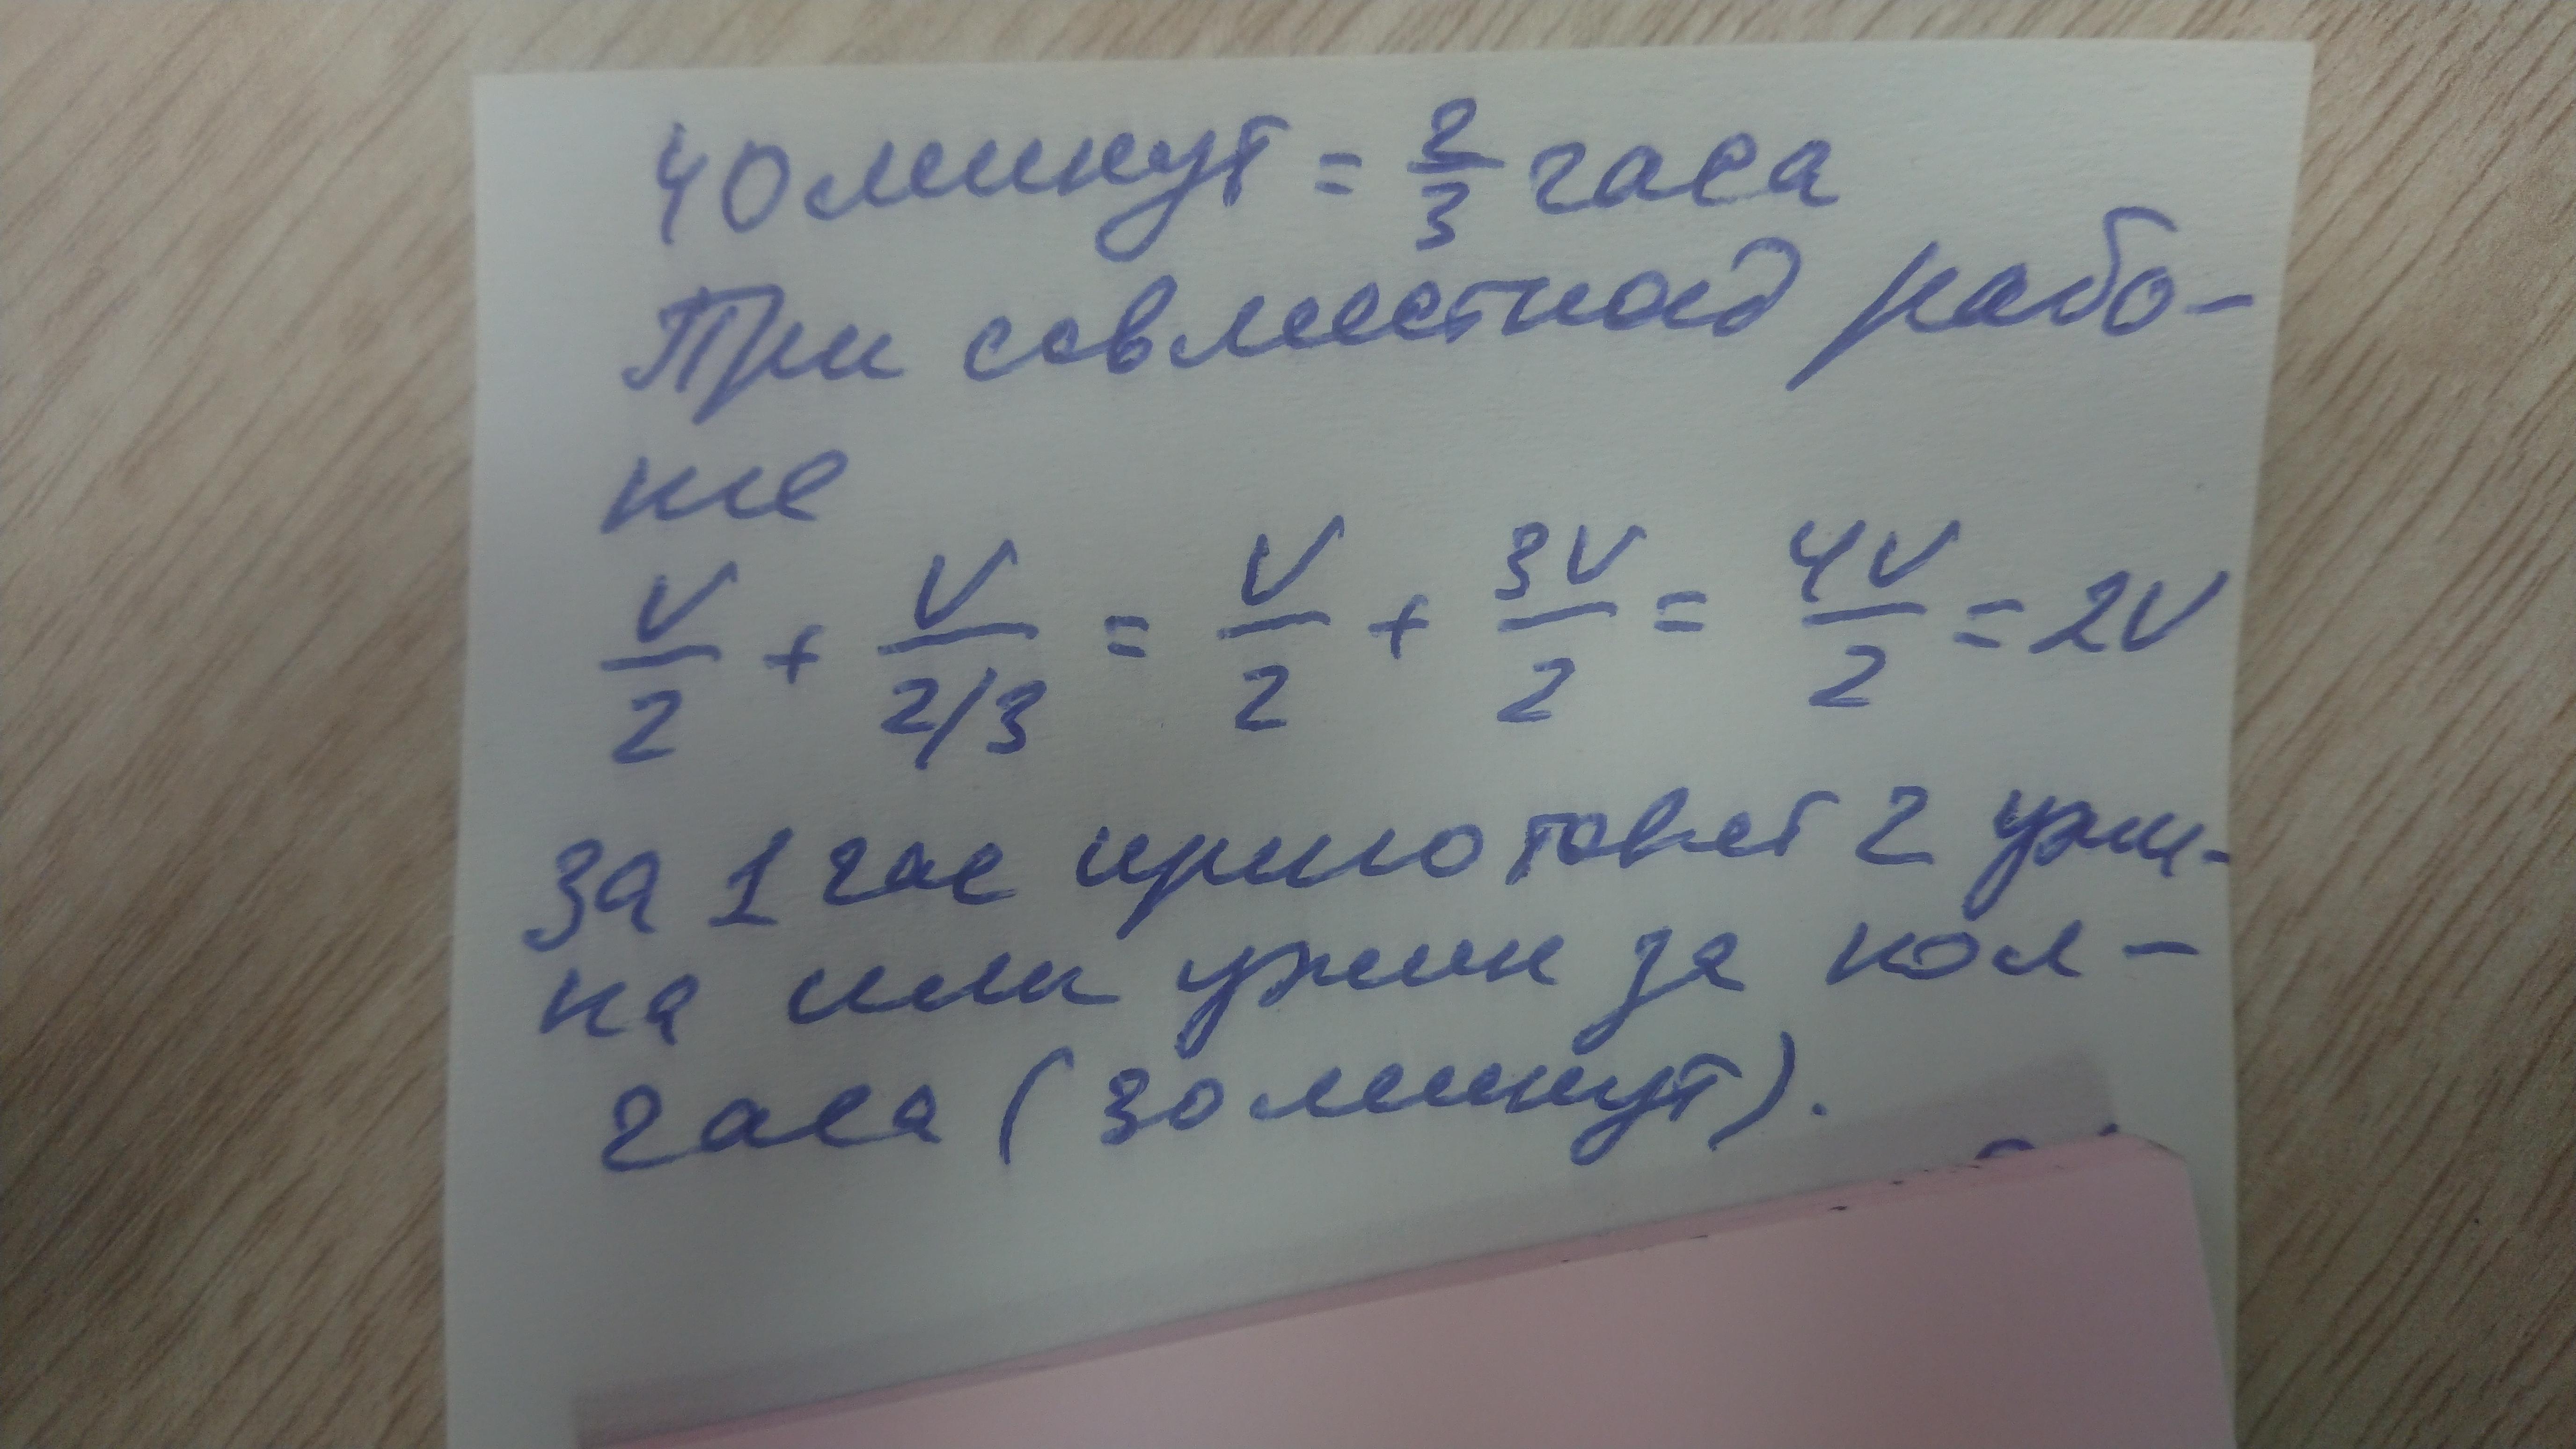 40 минут = 2/3 часа
При совместной рабо-
те
V/2 + V/2/3 = V/2 + 3V/2 = 4V/2 = 2V
За 1 час приготовят 2 ужи-
на или ужин за пол-
часа (30 минут).